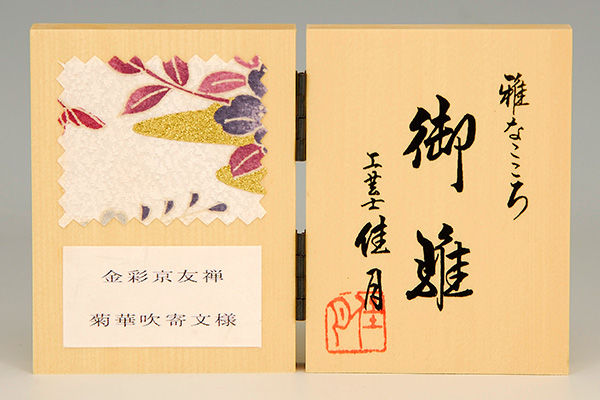 雅なこころ
御雛
工芸士 佳月
佳月
金彩京友禅
菊華吹寄文様